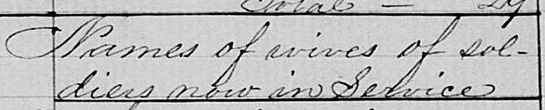 Total —
Names of wives of sol-
diers now in Service